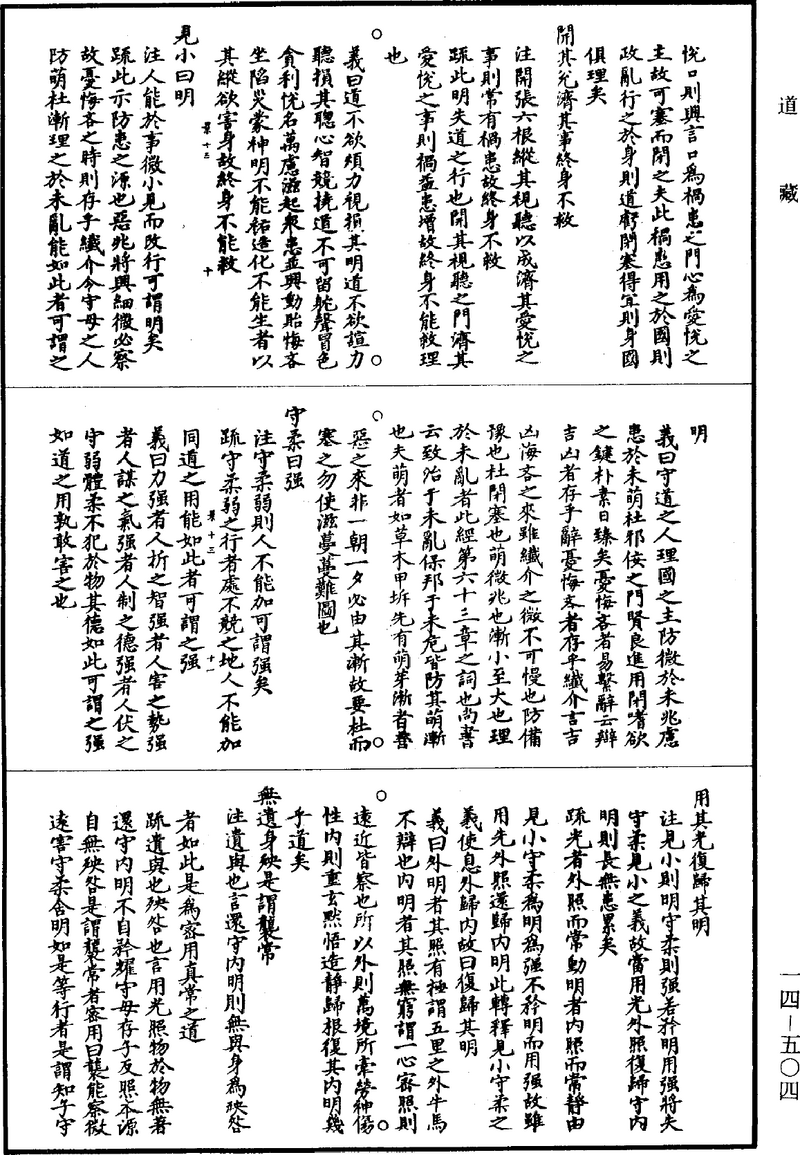 道藏
悅口則興言口為禍患之門心為愛悅之
主故可塞而閉之夫此禍患用之於國則
政亂行之於身則道虧閉塞得宜則身國
俱理矣
開其兌濟其事終身不救
注開張六根縱其視聽以成濟其愛悅之
事則常有禍患故終身不救
疏此明失道之行也開其視聽之門濟其
愛悅之事則禍益患增故終身不能救理
也
義曰道不欲煩力視損其明道不欲諠力
聽損其聰心智競撓道不可留躭聲冒色
貪利悅名萬慮滋起衆患並興動貽悔吝
坐陷災蒙神明不能祐造化不能生者以
其縱欲害身故終身不能救
見小曰明
注人能於事微小見而改行可謂明矣
疏此示防患之源也惡兆將興細微必察
故憂悔吝之時則存乎纖介今守母之人
防萌杜漸理之於未亂能如此者可謂之
明
義曰守道之人理國之主防微於未兆慮
患於未萌杜邪佞之門賢良進用閉嗜欲
之鍵朴素日臻矣憂悔吝者易繫辭云辯
吉凶者存乎辭憂悔吝者存乎纖介言吉
凶海吝之來雖纖介之微不可慢也防備
豫也杜閉塞也萌微兆也漸小至大也理
於未亂者此經第六十三章之詞也尚書
云致治于未亂保邦于未危皆防其萌漸
也夫萌者如草木甲坼先有萌芽漸者善
惡之來非一朝一夕必由其漸故要杜而
塞之勿使滋蔓蔓難圖也
守柔曰强
注守柔弱則人不能加可謂强矣
疏守柔弱之行者處不競之地人不能加
同道之用能如此者可謂之强
義曰力强者人折之智强者人害之勢强
者人謀之氣强者人制之德强者人伏之
守弱體柔不犯於物其德如此可謂之强
如道之用孰敢害之也
用其光復歸其明
注見小則明守柔則强若矜明用强將失
守柔見小之義故當用光外照復歸守内
明則長無患累矣
疏光者外照而常動明者内照而常静由
見小守柔為明為强不矜明而用强故雖
用先外照還歸内明此轉釋見小守柔之
義使息外歸内故曰復歸其明
義曰外明者其照有極謂五里之外牛馬
不辯也内明者其照無窮謂一心密照則
遠近皆察也所以外則萬境所牽勞神傷
性内則重玄默悟造静歸根復其内明幾
乎道矣
無遺身殃是謂襲常
注遺與也言還守内明則無與身為殃咎
者如此是為密用真常之道
疏遺與也殃咎也言用光照物於物無著
還守内明不自矜耀守母存子反照本源
自無殃咎是謂襲常者密用曰襲能察微
遠害守柔含明如是等行者是謂知子守
一四—五〇四